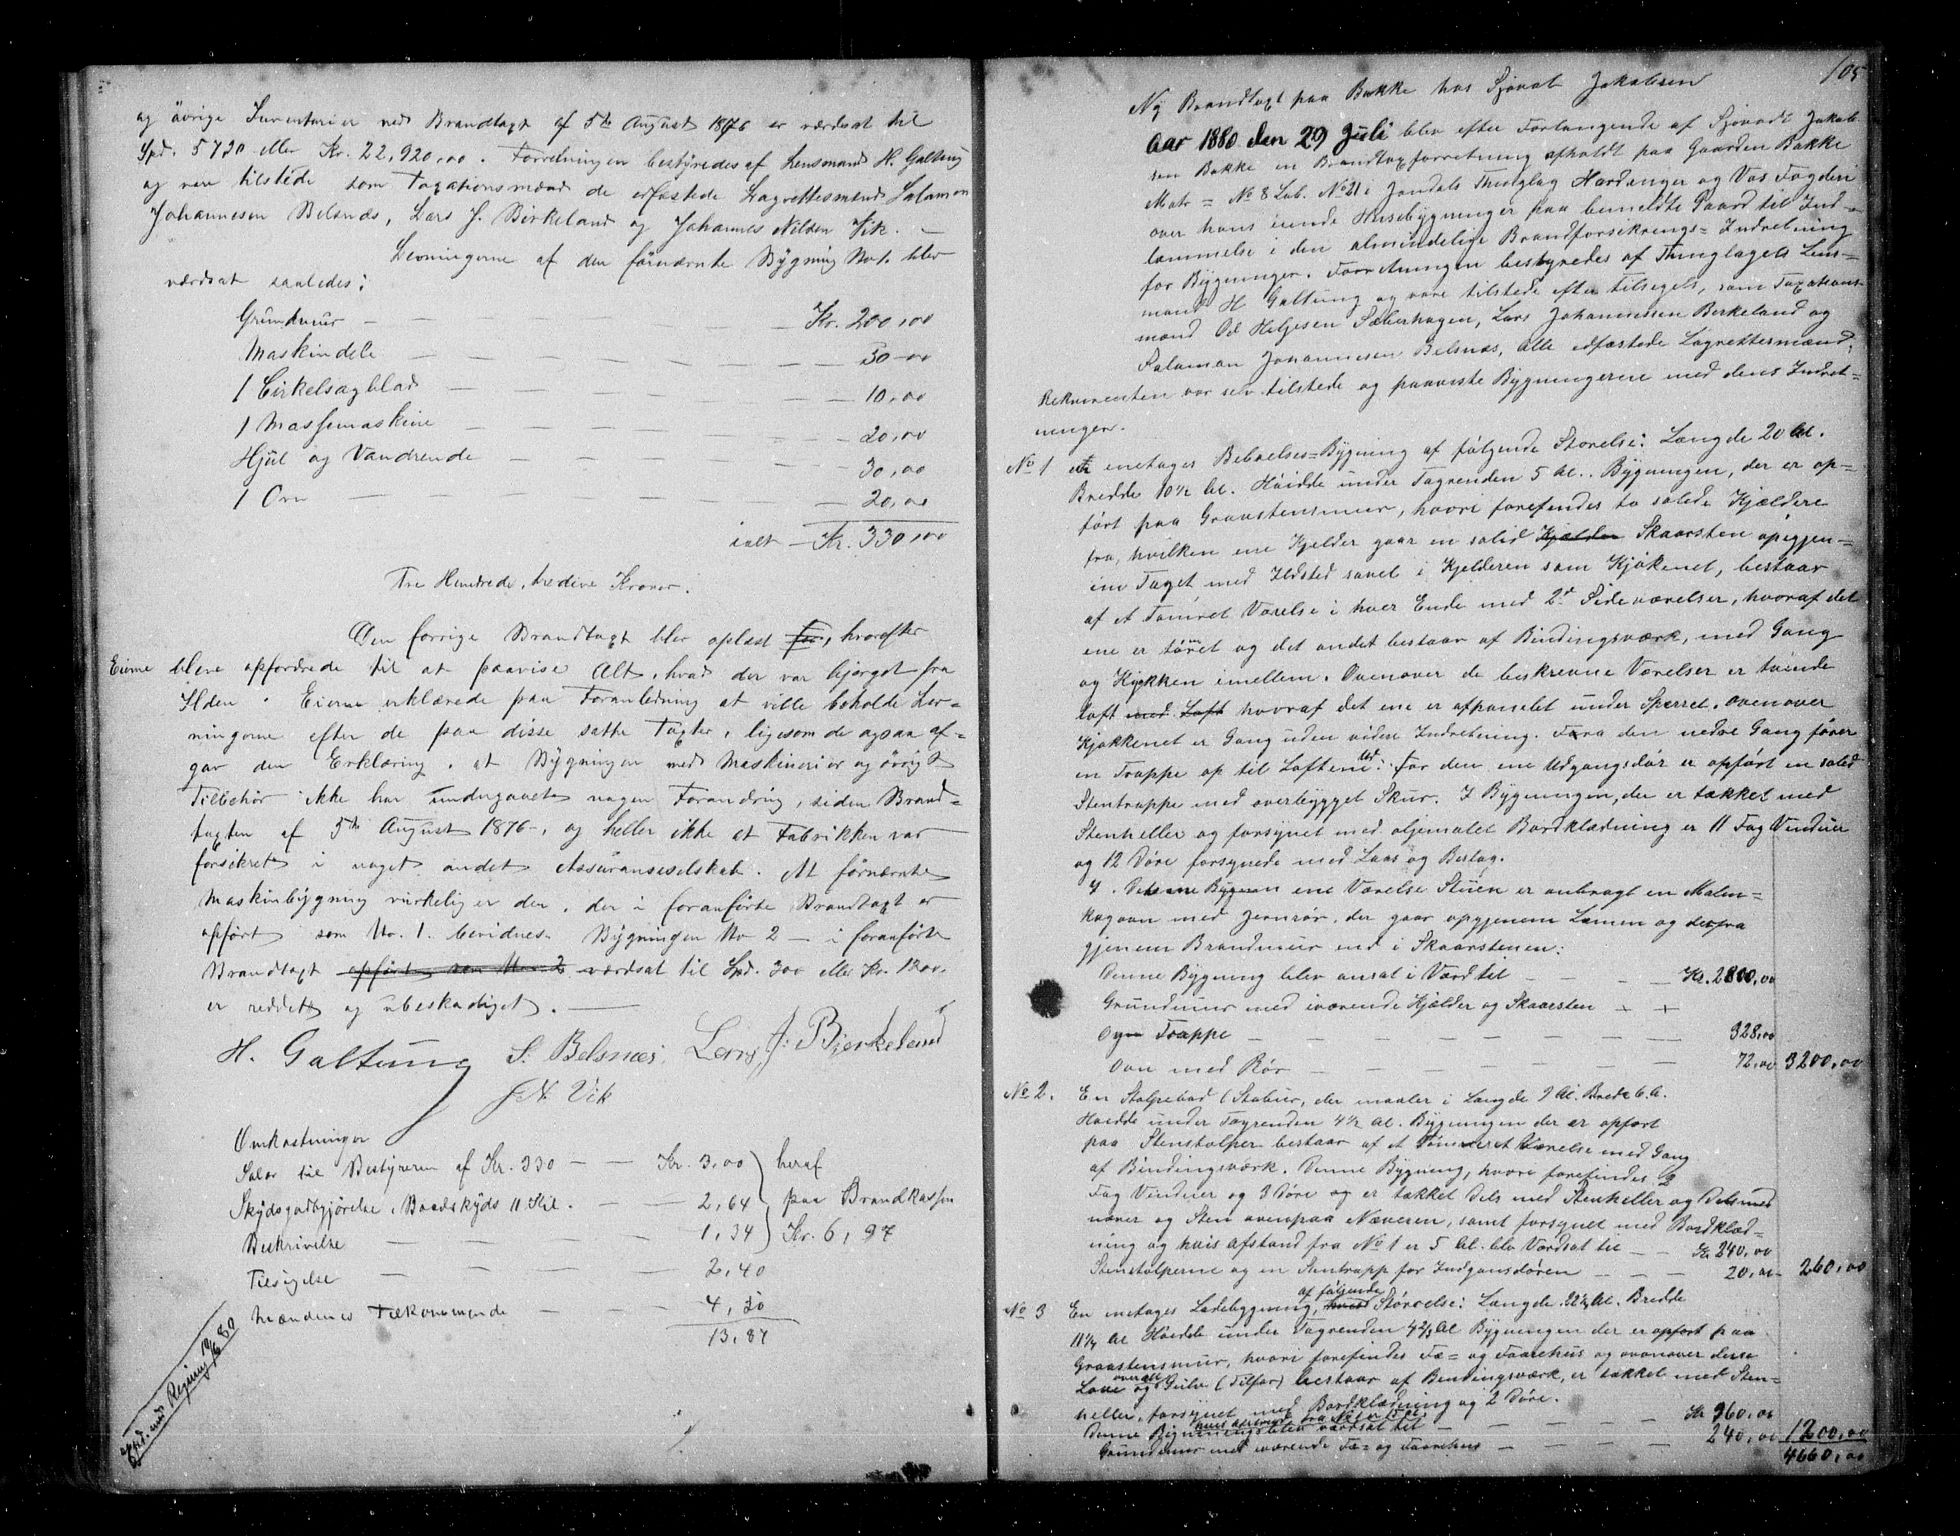 og övrige Inventarier ved Brandtagt af 5te August 1876 er værdsat til
Spd. 5730 eller Kr. 22,920,00. Forretningen bestyredes af Lensmand H. Galtung
og var tilstede som Taxationsmænd de edfæstede Lagrettesmænd Salamon
Johannesen Belsnæs, Lars J. Birkeland og Johannes Nilsen Vik. —
Levningerne af den förnævnte Bygning No 1. blev
værdsat saaledes:
Grundmur — Kr. 200,00
Maskindele — 50-00
1 Cirkelsagblad — 10,00
1 Massemaskine — 20,00
Hjul og Vandrende — 30,00
1 Ovn — 20,00
ialt — Kr. 330,00
Tre Hundrede, tredive Kroner.
Den forrige Brandtagt blev oplæst, hvorefter
Eierne bleve opfordrede til at paavise Alt, hvad der var bjerget fra
Ilden. Eierne erklærede paa Foranledning at ville beholde Lev-
ningerne efter de paa disse satte Taxter, ligesom de ogsaa af-
gav den Erklæring, at Bygningen med Maskineri er og övrigt
Tilbehör ikke har undergaaet nogen Forandring, siden Brand-
taxten af 5th August 1876-, og heller ikke at Fabrikken var
forsikret i noget andet Assuranseselskab. At förnævnte
Maskinbygning virkelig er den, der i foranförte Brandtagt er
opfört som No. 1. bevidnes. Bygningen No 2 — i foranförte
Brandtagt opfört som No 2 værdsat til Spd. 300 eller Kr. 1200.
er reddet og ubeskadiget. —
H. Galtung S. Belsnæs, Lars J. Bierkeland
J. N. Vik
Omkostninger
Salær til Bestyreren af Kr. 330 — Kr. 3,00 heraf
Skydsgodtgjørelse, Baadskyds 11 Kil. — 2,64 paa Brandkassen
Beskrivelse — 1,34 Kr. 6,97
Tilsigelse — 2,40
Mændenes Tilkommende — 4,50
13,87
Regning 19/6 80
105
Ny Brandtagt paa Bakke hos Sjovat Jakobsen
Aar 1880 den 29 Juli blev efter Forlangende af Sjovat Jakob-
sen Bakke en Brandtaxforretning afholdt paa Gaarden Bakke
Matr = No 8 Lab. No 21 i Jondals Thinglag Hardanger og Vos Fogderi
over hans eiende Husebygninger paa bemeldte Gaard til Ind-
lemmelse i den almindelige Brandforsikrings= Indretning
for Bygninger. Forretningen bestyredes af Thinglagets Lens=
mand H Galtung og vare tilstede efter tilsigels, som Taxations-
mænd Od Helgesen Sæberhagen, Lars Johannessen Berkeland og
Salamon Johannesen Belsnæs, alle edfæstede Lagrettesmænd,
Rekvirenten var selv tilstede og paaviste Bygningerne med dens Indret-
ninger.
No 1 et enetages Bebvelses=Bygning af følgende Størelse: Længde 20 Al.
Bredde 10 1/2 Al. Høidde under Tagrenden 5 Al.. Bygningen, der er op=
ført paa Graastensmur, hvori forefindes to solede Kjældere
fra, hvilken ene Kjelder gaar en solid Kjælder Skaarsten opigjen-
em Taget med Ildsted savel i Kjelderen som Kjøkenet, bestaar
af et Tømret Værelse i hver Ende med 2de Sideværelser, hvoraf det
ene er tømret og det andet bestaar af Bindingsværk, med Gang
og Kjøkken imellem. Ovenover de beskrevne Værelser er tvende
loft med Loft hvoraf det ene er afpanelet under Sperret. ovenover
Kjøkkenet er Gang uden videre Indretning. Fra den nedre Gang fører
en Trappe op til Loftene. For den ene Udgangsdør er opført en soled
Stentrappe med overbygget Skur. I Bygningen, der er tækket med
Stenheller og forsynet med oljemalet Bordklædning er 11 Fag Vinduer
og 12 Døre forsynede med Laas og Beslag.
I Denne Bygnen ene Værelse Stuen er anbragt en Malen-
kagovn med Jernrør, der gaar opgjenem Lemen og derfra
gjenem Brandmur ind i Skaarstenen:
Denne Bygning blev ansat i Værd til — Kr. 2800,00
Grundmur med iværende Kjælder og Skaarsten
Ogn Trappe — 328,00
Ovn med Rør — 72,00 3200,00
No 2. En Stolpebod (Stabur, der maaler i Længde 9 Al. Brede 6 A.
Høidde under Tagrenden 4 1/2 Al. Bygningen der er opført
paa Stenstolper bestaar af et Tømmeret Værelse med Gang
af Bindingsværk. Denne Bygning, hvori forefindes 2
Fag Vinduer og 3 Døre og er tækket Dels med Stenheller og Dels med
næver og Sten ovenpaa Næveren, samt forsynet med Bordklæd=
ning og hvis afstand fra No 1 er 5 Al. blev Værdsat til — Kr 240,00
Stenstolperne og en Sentrapp for Indgansdøren — 20,00 260,00
No 3 En enetages Ladebygning, af følgende hvis Størrelse: Længde 22 1/2 Al. Bredde
11 1/4 Al Høidde under Tagrenden 4 2/3 Al Bygningen der er opført paa
Graastensmur, hvori forefindes Fæ= og Faarehus og ovenover desse
Lave og overalt Gulv (Tilfar) bestaar af Bindingsværk, er tækket med Sten=
heller, forsynet med Bordklædning og 2 Døre.
Denne Bygning hvis afstand fra No 1 er blev værdsat til — Kr 960,00
Grundmur med iværende Fæ= og Faarehus — 240,00 1200,00
4660,00